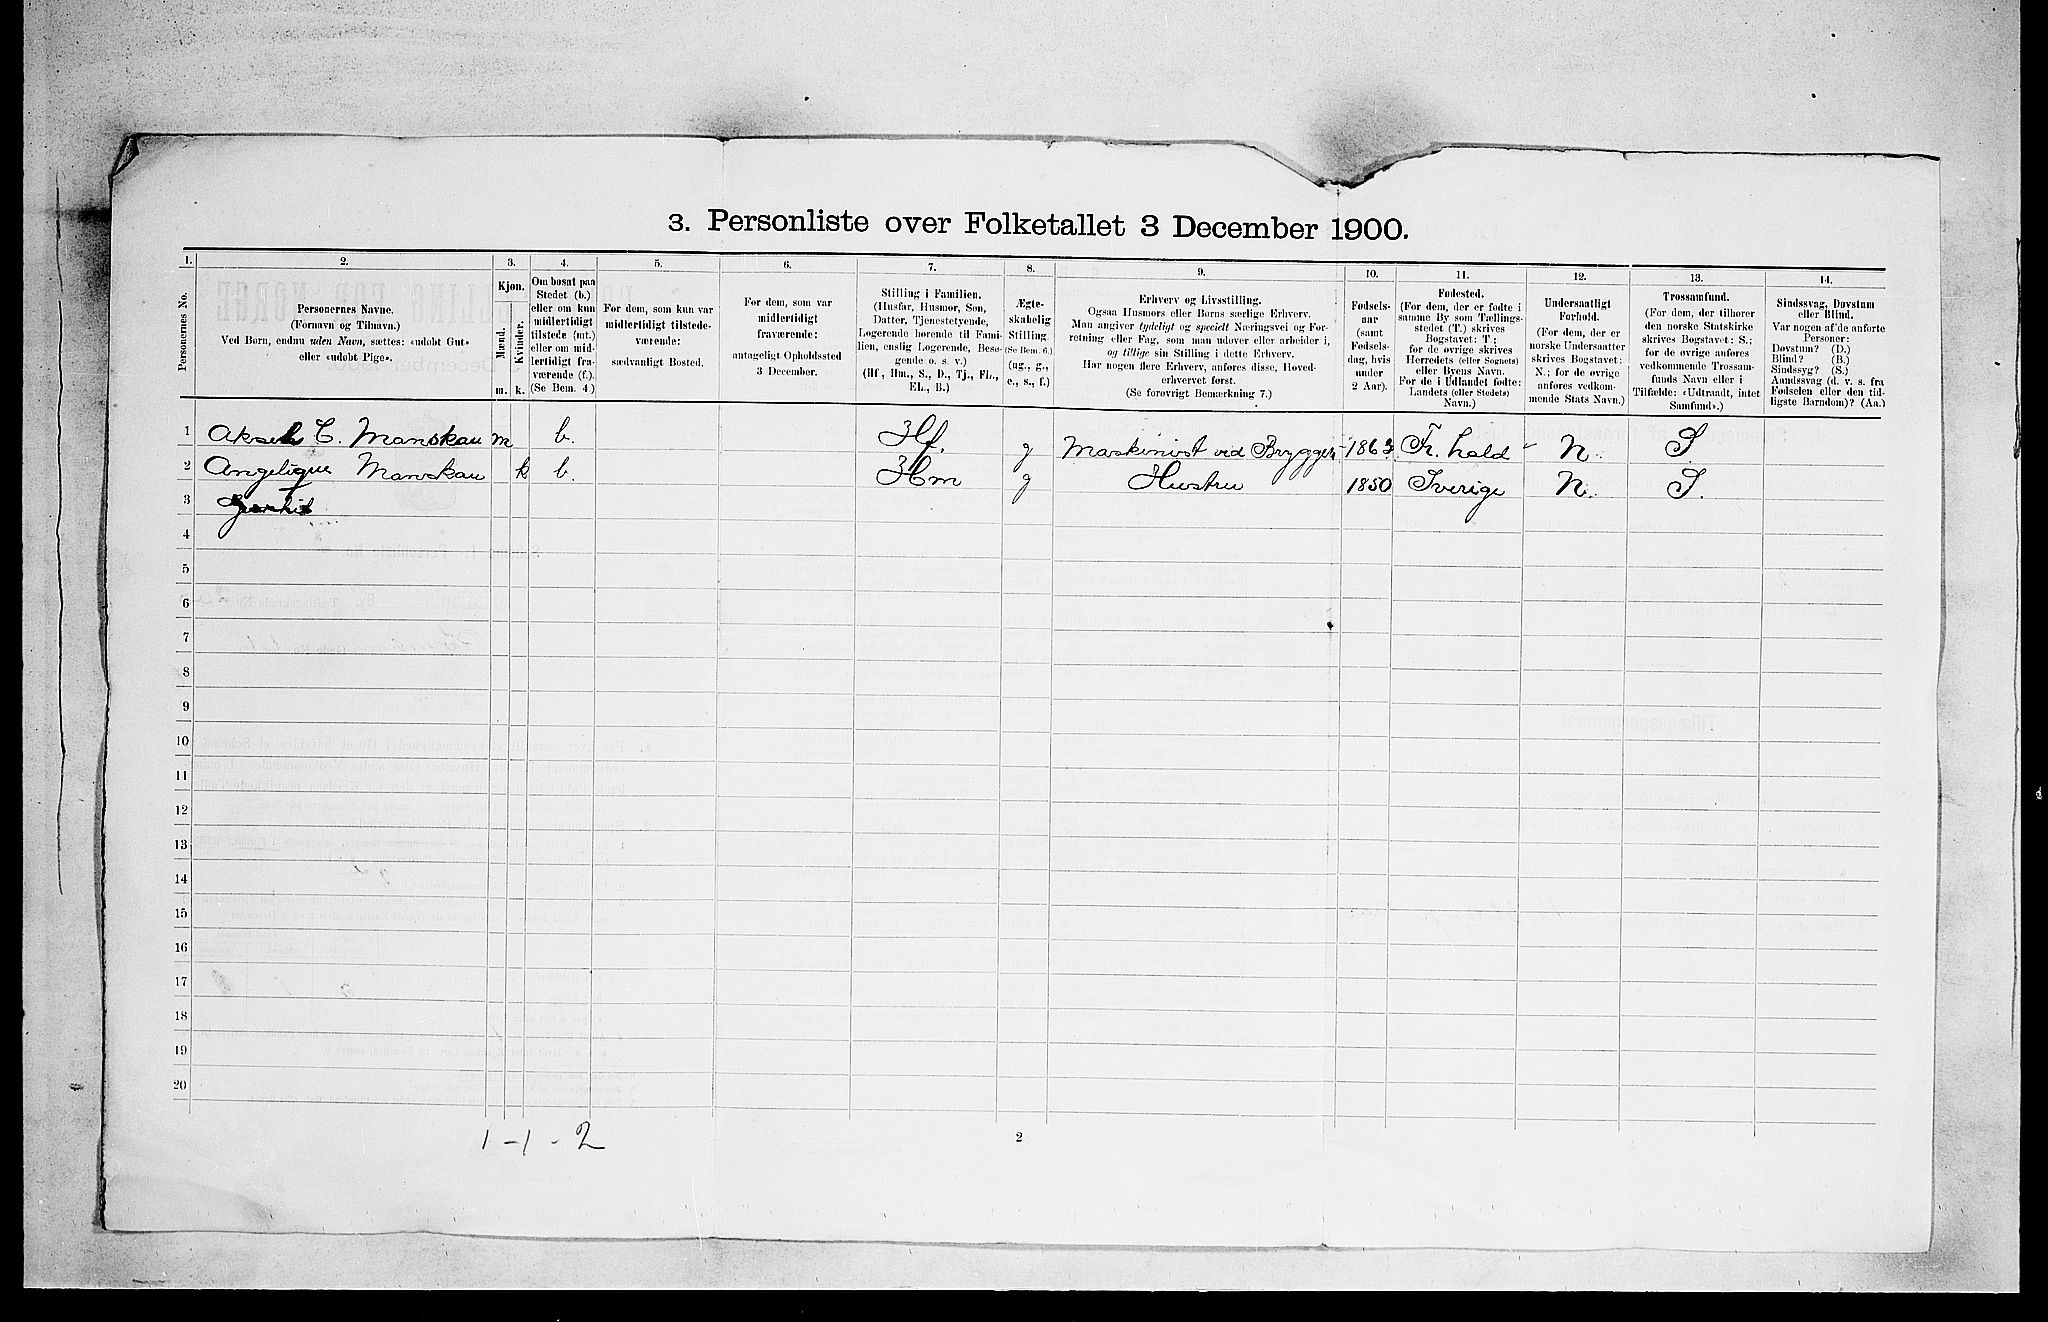 3. Personliste over Folketallet 3 December 1900.
1. 2. 3. 4. 5. 6. 7. 8. 9. 10. 11. 12. 13. 14.
Personernes No.
Personernes Navne.
(Fornavn og Tilnavn.)
Ved Børn, endnu uden Navn, sættes: «udøbt Gut»
eller «udøbt Pige».
Kjøn.
Mænd.
Kvinder.
m. k.
Om bosat paa
Stedet (b.)
eller om kun
midlertidigt
tilstede (mt.)
eller om mid-
lertidigt fra-
værende (f.).
(Se Bem. 4.)
For dem, som kun var
midlertidigt tilstede-
værende:
sædvanligt Bosted.
For dem, som var
midlertidigt
fraværende:
antageligt Opholdssted
3 December.
Stilling i Familien.
(Husfar, Husmor, Søn,
Datter, Tjenestetyende,
Logerende hørende til Fami-
lien, enslig Logerende, Besø-
gende o. s. v.)
(Hf., Hm., S., D., Tj., FL.,
EL., B.)
Ægte-
skabelig
Stilling.
(Se Bem. 6.)
(ug., g.,
e., s., f.)
Erhverv og Livsstilling.
Ogsaa Husmors eller Børns særlige Erhverv.
Man angiver tydeligt og specielt Næringsvei og For-
retning eller Fag, som man udøver eller arbeider i,
og tillige sin Stilling i dette Erhverv.
Har nogen flere Erhverv, anføres disse, Hoved-
erhvervet først.
(Se forøvrigt Bemærkning 7.)
Fødsels-
aar
(samt
Fødsels-
dag, hvis
under
2 Aar).
Fødested.
(For dem, der er fødte i
samme By som Tællings-
stedet (T.) skrives
Bogstavet: T;
for de øvrige skrives
Herredets (eller Sognets)
eller Byens Navn.
For de i Udlandet fødte:
Landets (eller Stedets)
Navn.)
Undersaatligt
Forhold.
(For dem, der er
norske Undersaatter
skrives Bogstavet:
N.; for de øvrige
anføres vedkom-
mende Stats Navn.)
Trossamfund.
(For dem, der tilhører
den norske Statskirke
skrives Bogstavet: S.;
for de øvrige anføres
vedkommende Trossam-
funds Navn eller i
Tilfælde: «Udtraadt, intet
Samfund».)
Sindssvag, Døvstum
eller Blind.
Var nogen af de anførte
Personer:
Døvstum? (D.)
Blind? (B.)
Sindssyg? (S.)
Aandssvag (d. v. s. fra
Fødselen eller den tid-
ligste Barndom)? (Aa.)
1 Aksel C. Manskau m b. Hf. g Maskinist ved Bryggeri 1863 Fr. hald N. S
2 Angelique Manskau k b. Hm g Hustru 1850 Sverige N. S.
3
4
5
6
7
8
9
10
11
12
13
14
15
16
17
18
19
20
1 - 1 - 2
2